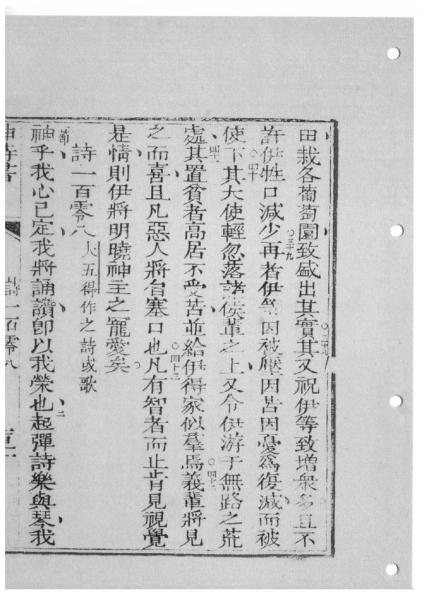 田栽各葡萄園致盛出其實其又祝伊等致增衆多且不
許伊牲口減少再者伊等因被壓因苦因憂爲復減而被
使下其大使輕忽落諸侯輩之上又令伊游于無路之荒
處其置貧者高居不受苦並給伊得家似羣焉義輩將見
之而喜且凡惡人將自塞口也凡有智者而止肯見視覺
是情則伊將明曉神主之寵愛矣
詩一百零八 大五得作之詩或歌
神乎我心已定我將誦讀卽以我榮也起彈詩樂與琴我
詩一百零八